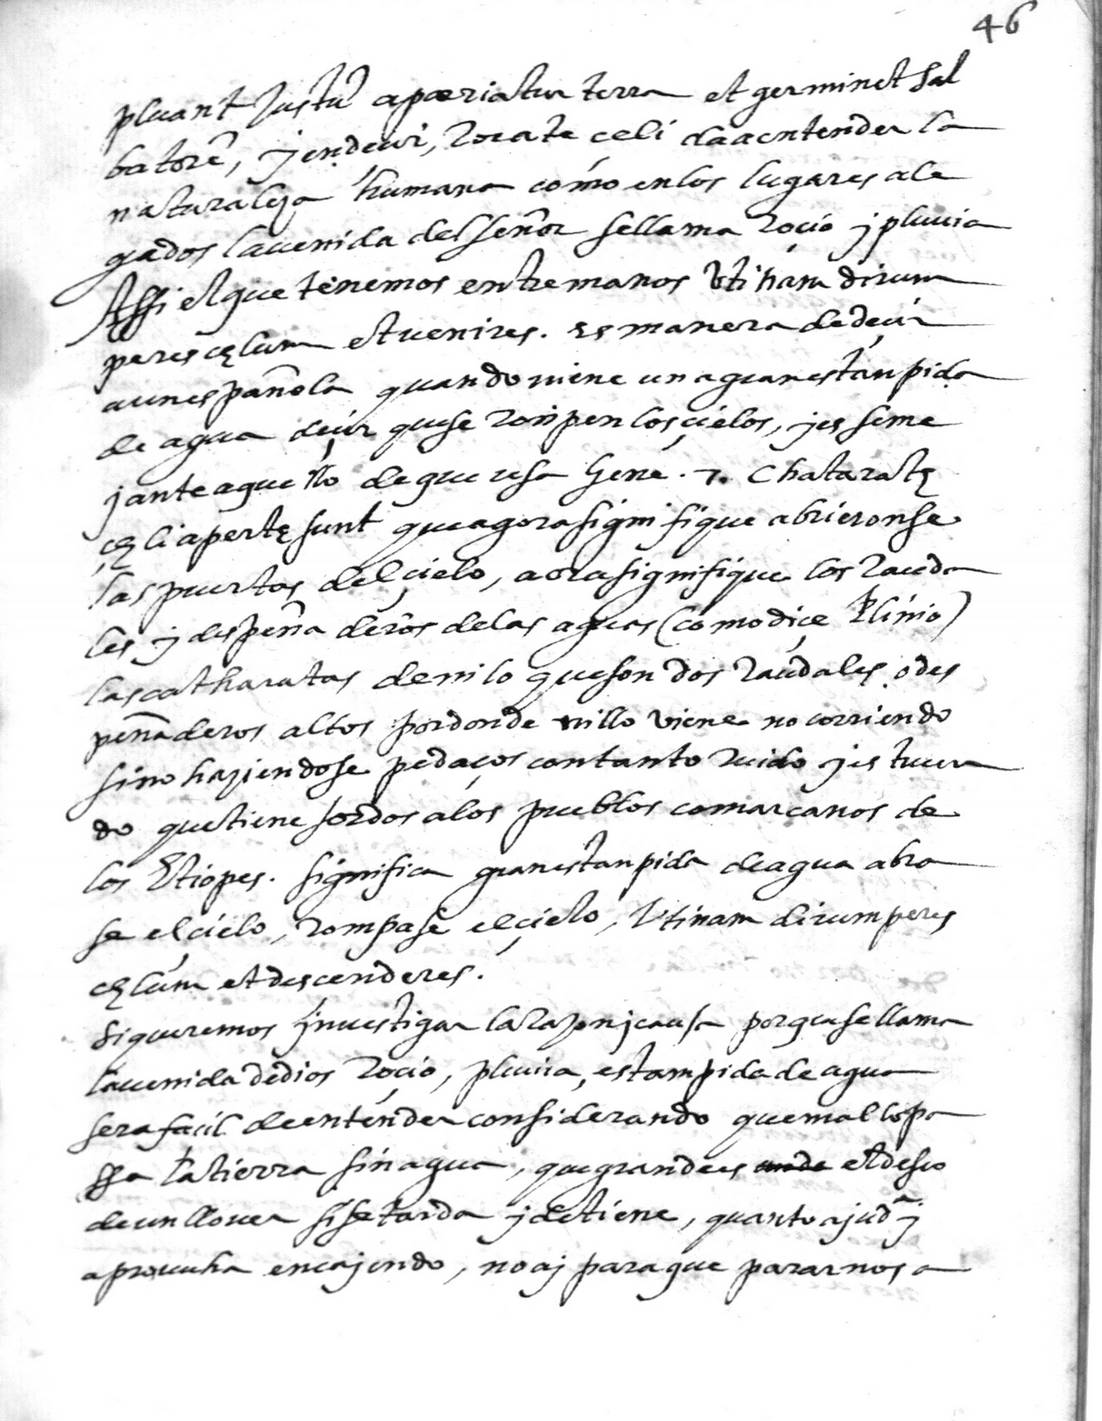 46
pluant Justũ apæriatur terra et germinet sal
batorẽ, y en deçir, Rorate celi da a entender la
naturaleza humana como en los lugares ale
gados la uenida del señor se llama Roçio y pluuia
Assi el que tenemos entre manos Vtinam dirum
peres cęlum et uenires. es manera de deçir
aun española quando uiene un a gran estanpida
de agua deçir que se Ronpen los çielos, y es seme
jante aquello de que usa Gene. 7. Chataratę
cęli apertę sunt que agora signifique abrieronse
las puertas del çielo, aora signifique los Rauda
les y despeñaderos de las aguas (como diçe Plinio)
las catharatas de nilo que son dos Raudales o des
peñaderos altos por donde nillo viene no corriendo
sino haziendose pedaços con tanto Ruido y estruen
do que tiene sordos a los pueblos comarcanos de
los Etiopes. significa gran estanpida de agua abra
se el çielo, Rompase el çielo, Vtinam dirumperes
cęlum et descenderes.
Si queremos ynuestigar la Razon y causa porque se llama
la uenida de dios Roçio, pluuia, estampida de agua
sera façil de entender considerando que mal lo pa
ssa la tierra sin agua, que grande es el deseo
de un llouer si se tarda y detiene, quanto ajuda y
aprouecha en cajendo, no aj para que pararnos a